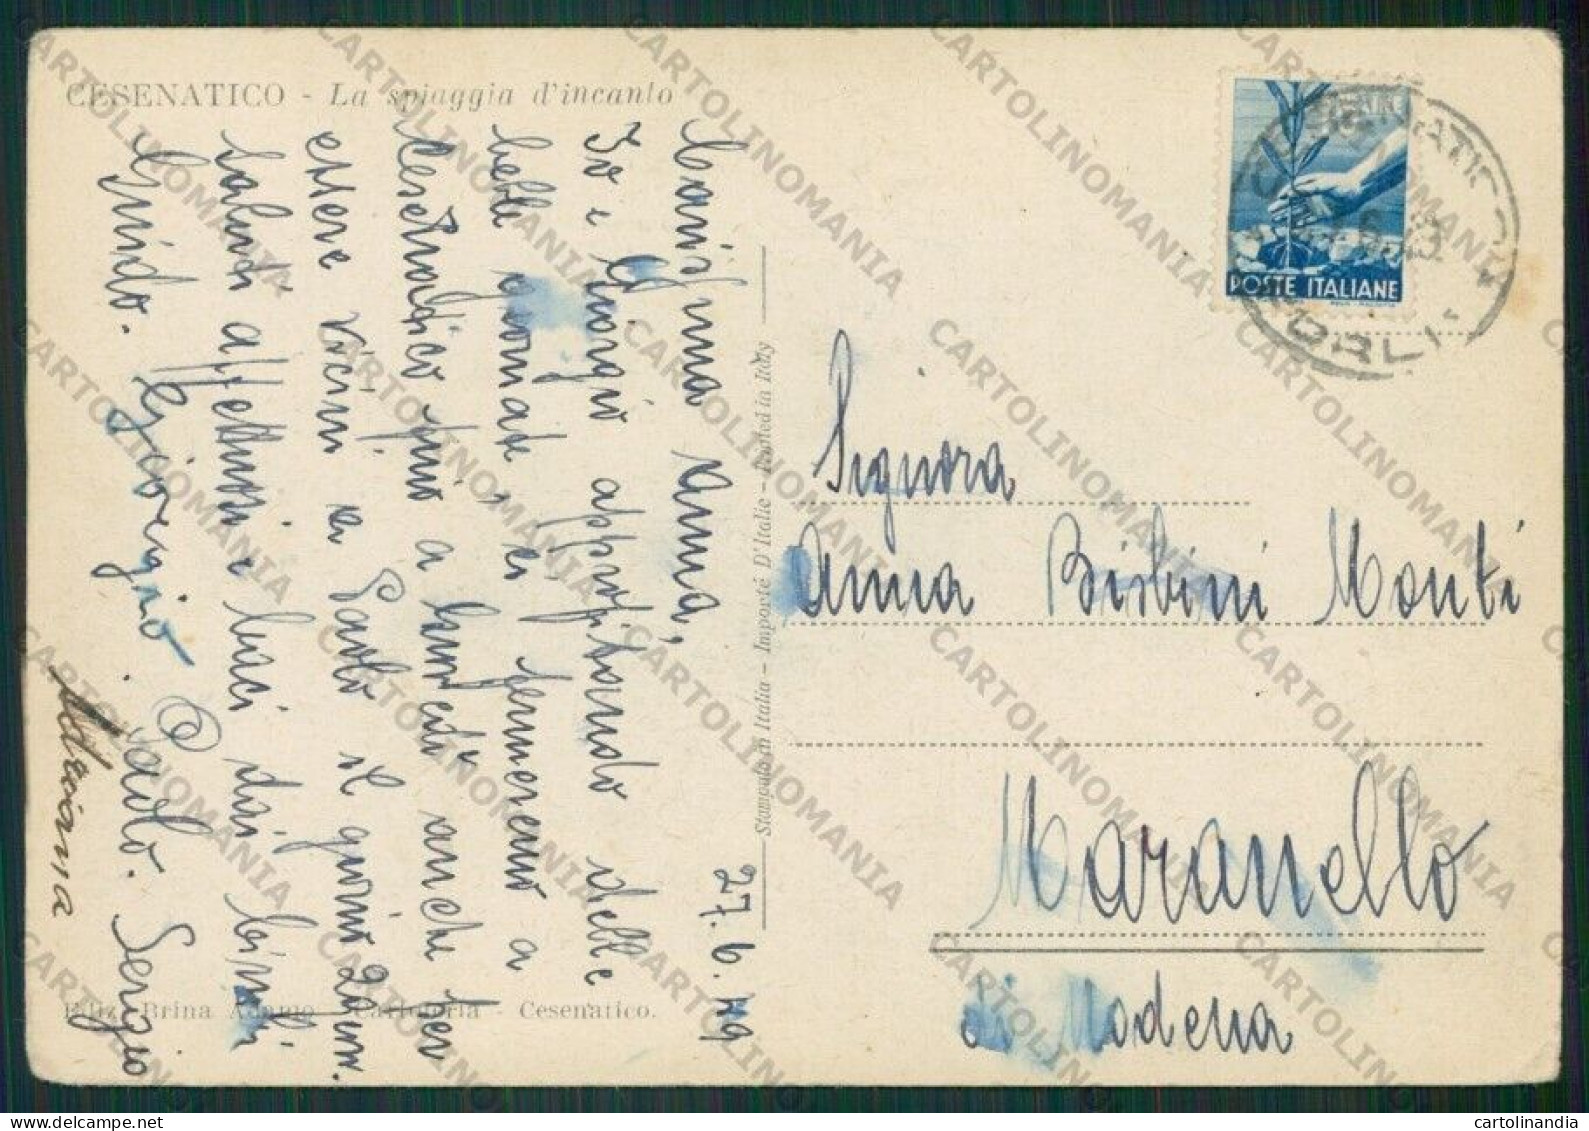 CESENATICO - La spiaggia d'incanto
27.6.49
Carissima Anna,
Io e Giorgio approfittando delle
belle giornate ci fermeremo a
Cesenatico fino a lunedì anche per
essere vicini a Paolo il giorno
saluti affettuosi e baci dai bimbi
Guido. Giorgio Paolo. Sergio
Stampato in Italia - Importé D'Italie - Printed in Italy
Ediz. Brina Adamo - Cartoleria - Cesenatico.
POSTE ITALIANE
CESENATICO
FORLI
Signora
Anna Bisbini Monti
Maranello
di Modena
CARTOLINOMANIA
cartolinandia